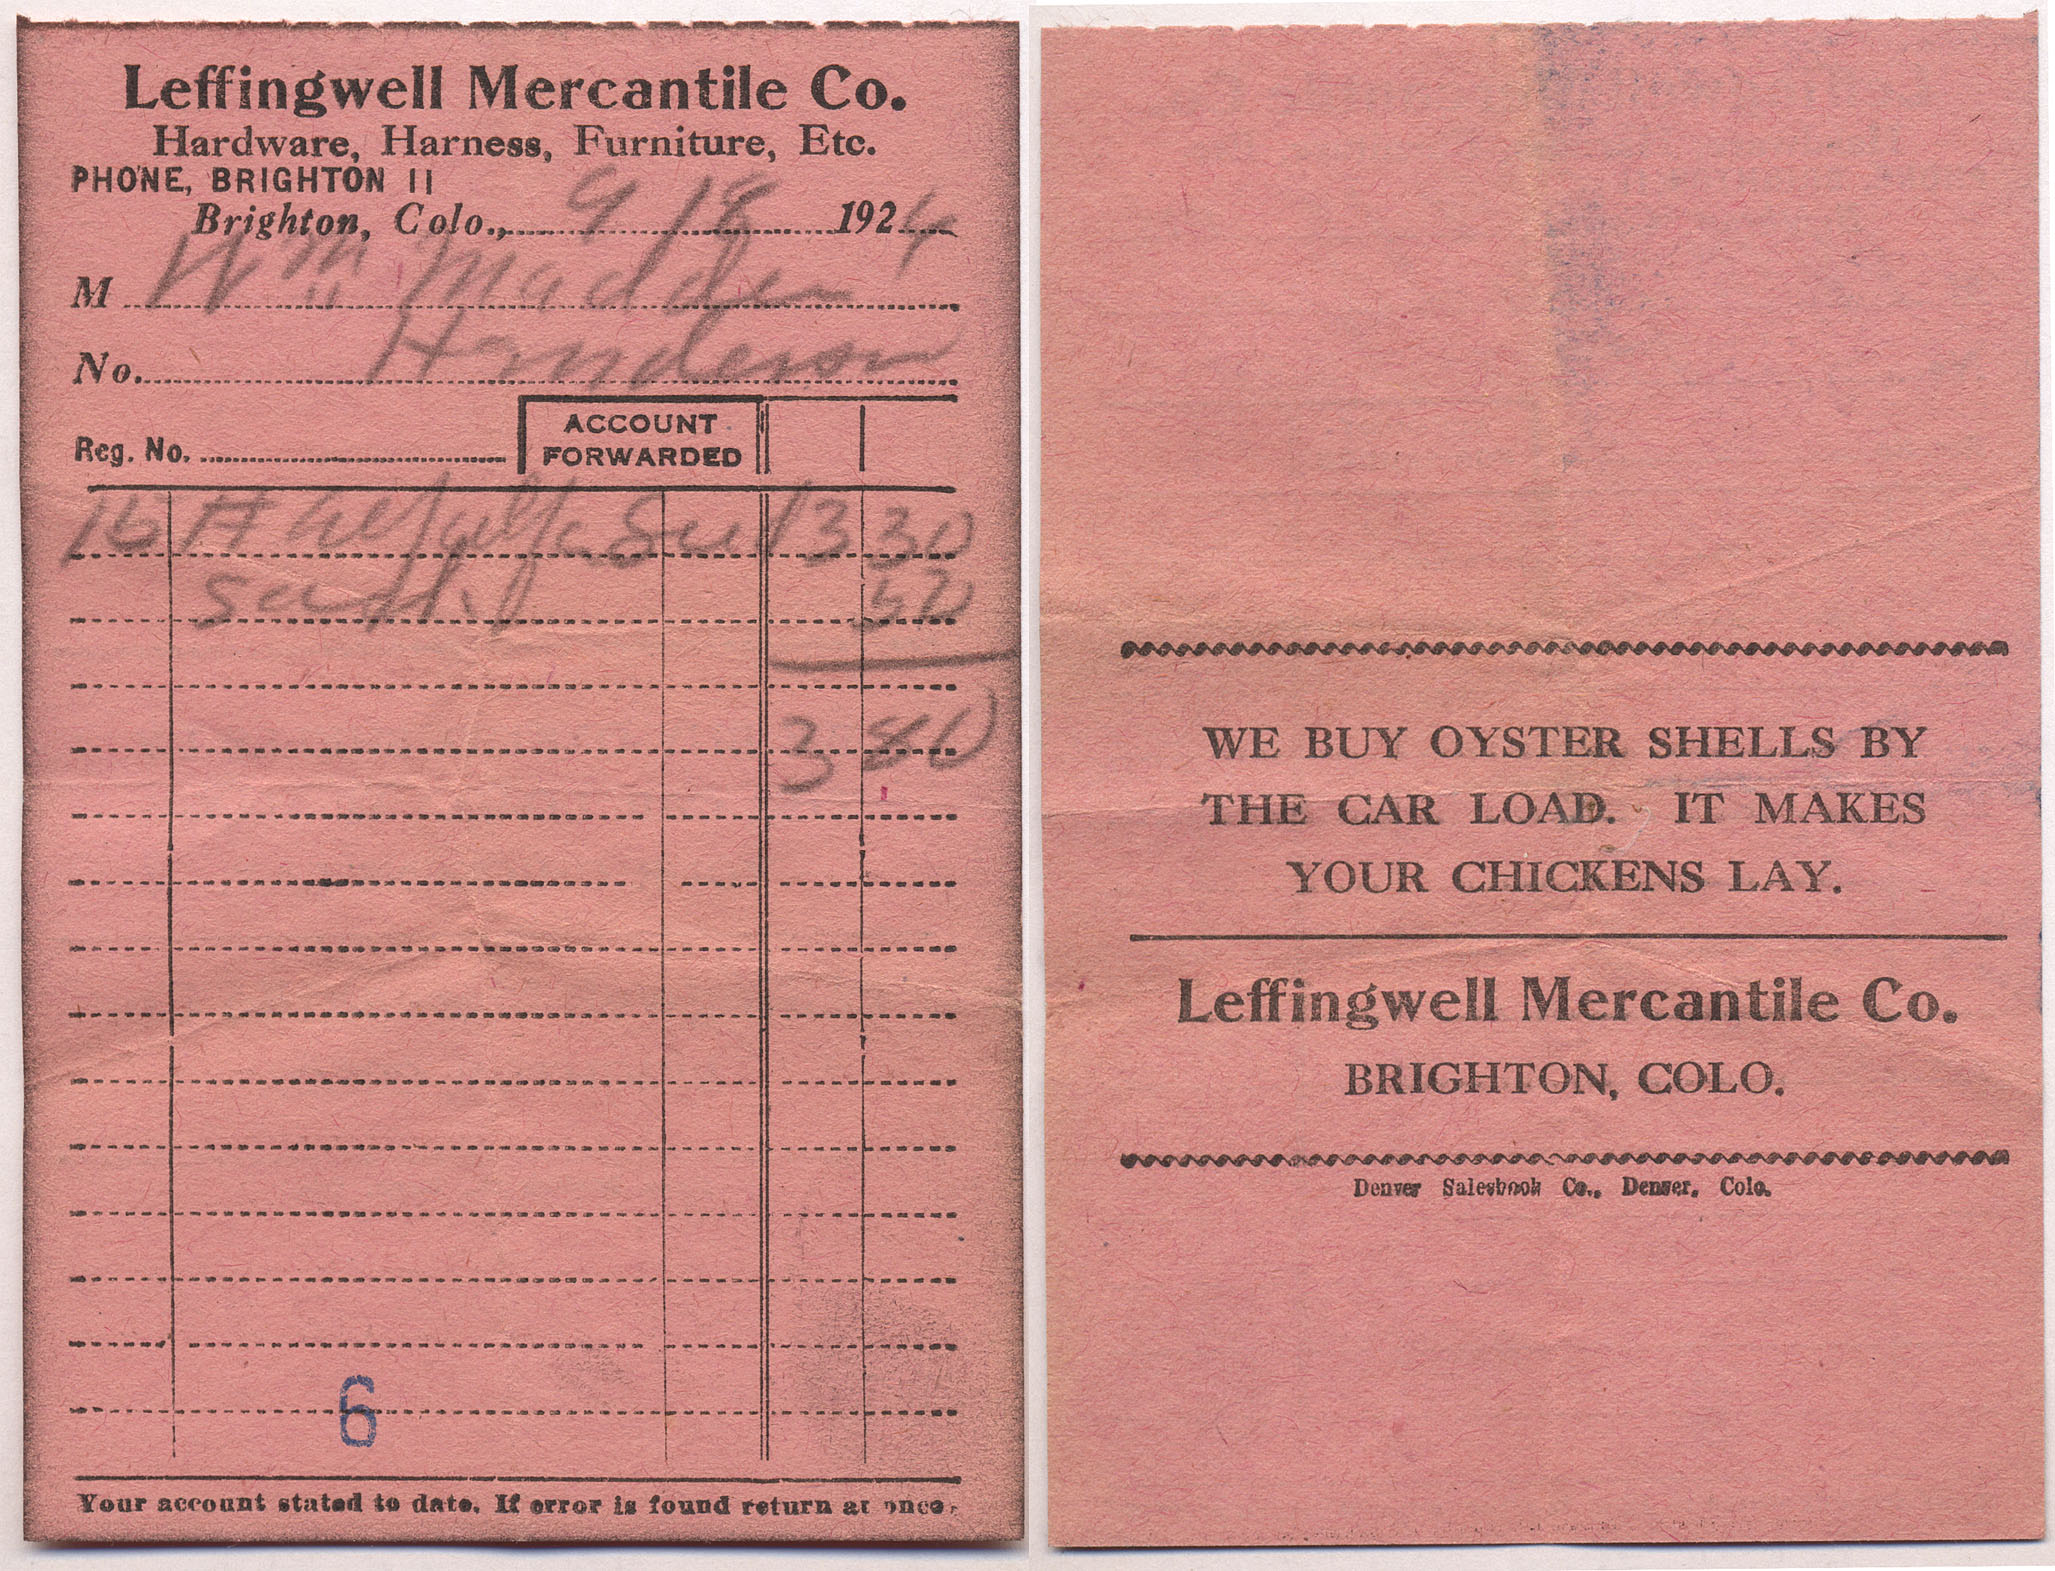 Leffingwell Mercantile Co.
Hardware, Harness, Furniture, Etc.
PHONE, BRIGHTON 11
Brighton, Colo., 9/18 1924
M Wm Madden
No. Henderson
Reg. No. ACCOUNT FORWARDED
16 # Alfalfa Seed 3 30
50
3 80
6
Your account stated to date. If error is found return at once.
WE BUY OYSTER SHELLS BY
THE CAR LOAD. IT MAKES
YOUR CHICKENS LAY.
Leffingwell Mercantile Co.
BRIGHTON, COLO.
Denver Salesbook Co., Denver, Colo.